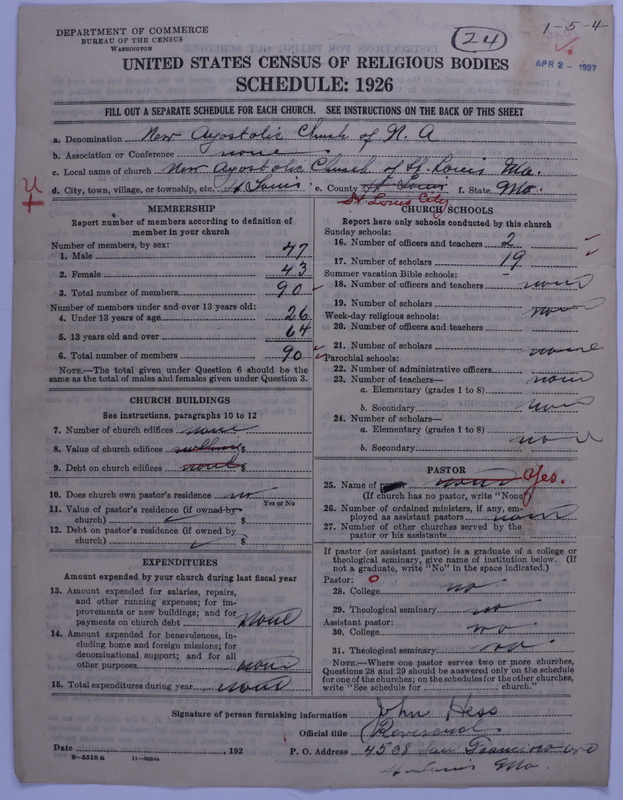 DEPARTMENT OF COMMERCE
BUREAU OF THE CENSUS
WASHINGTON
24
1-5-4
APR 2 - 1927
UNITED STATES CENSUS OF RELIGIOUS BODIES
SCHEDULE: 1926
FILL OUT A SEPARATE SCHEDULE FOR EACH CHURCH. SEE INSTRUCTIONS ON THE BACK OF THIS SHEET
a. Denomination New Apostolic Church of N. A
b. Association or Conference none
c. Local name of church New Apostolic Church of St. Louis Mo.
d. City, town, village, or township, etc. St Louis e. County St Louis f. State Mo.
St. Louis City
MEMBERSHIP
Report number of members according to definition of
member in your church
Number of members, by sex:
1. Male 47
2. Female 43
3. Total number of members 90
Number of members under and over 13 years old:
4. Under 13 years of age 26
5. 13 years old and over 64
6. Total number of members 90
NOTE.—The total given under Question 6 should be
the same as the total of males and females given under Question 3.
CHURCH BUILDINGS
See instructions, paragraphs 10 to 12
7. Number of church edifices none
8. Value of church edifices $
9. Debt on church edifices none $
10. Does church own pastor's residence no
Yes or No
11. Value of pastor's residence (if owned by
church) $
12. Debt on pastor's residence (if owned by
church) $
EXPENDITURES
Amount expended by your church during last fiscal year
13. Amount expended for salaries, repairs,
and other running expenses; for im-
provements or new buildings; and for
payments on church debt none
14. Amount expended for benevolences, in-
cluding home and foreign missions; for
denominational support; and for all
other purposes none
15. Total expenditures during year none
CHURCH SCHOOLS
Report here only schools conducted by this church
Sunday schools:
16. Number of officers and teachers 2
17. Number of scholars 19
Summer vacation Bible schools:
18. Number of officers and teachers none
19. Number of scholars none
Week-day religious schools:
20. Number of officers and teachers
21. Number of scholars none
Parochial schools:
22. Number of administrative officers
23. Number of teachers— none
a. Elementary (grades 1 to 8)
b. Secondary none
24. Number of scholars—
a. Elementary (grades 1 to 8) none
b. Secondary
PASTOR
25. Name of none Yes.
(If church has no pastor, write "None")
26. Number of ordained ministers, if any, em-
ployed as assistant pastors none
27. Number of other churches served by the
pastor or his assistants
If pastor (or assistant pastor) is a graduate of a college or
theological seminary, give name of institution below. (If
not a graduate, write "No" in the space indicated.)
Pastor:
28. College no
29. Theological seminary no
Assistant pastor:
30. College no
31. Theological seminary no
NOTE.—Where one pastor serves two or more churches,
Questions 28 and 29 should be answered only on the schedule
for one of the churches; on the schedules for the other churches,
write "See schedule for church."
Signature of person furnishing information John Hess
Official title Reverend
Date , 192 P. O. Address 4538 San Francisco ave
8-5518 a
St Louis Mo.